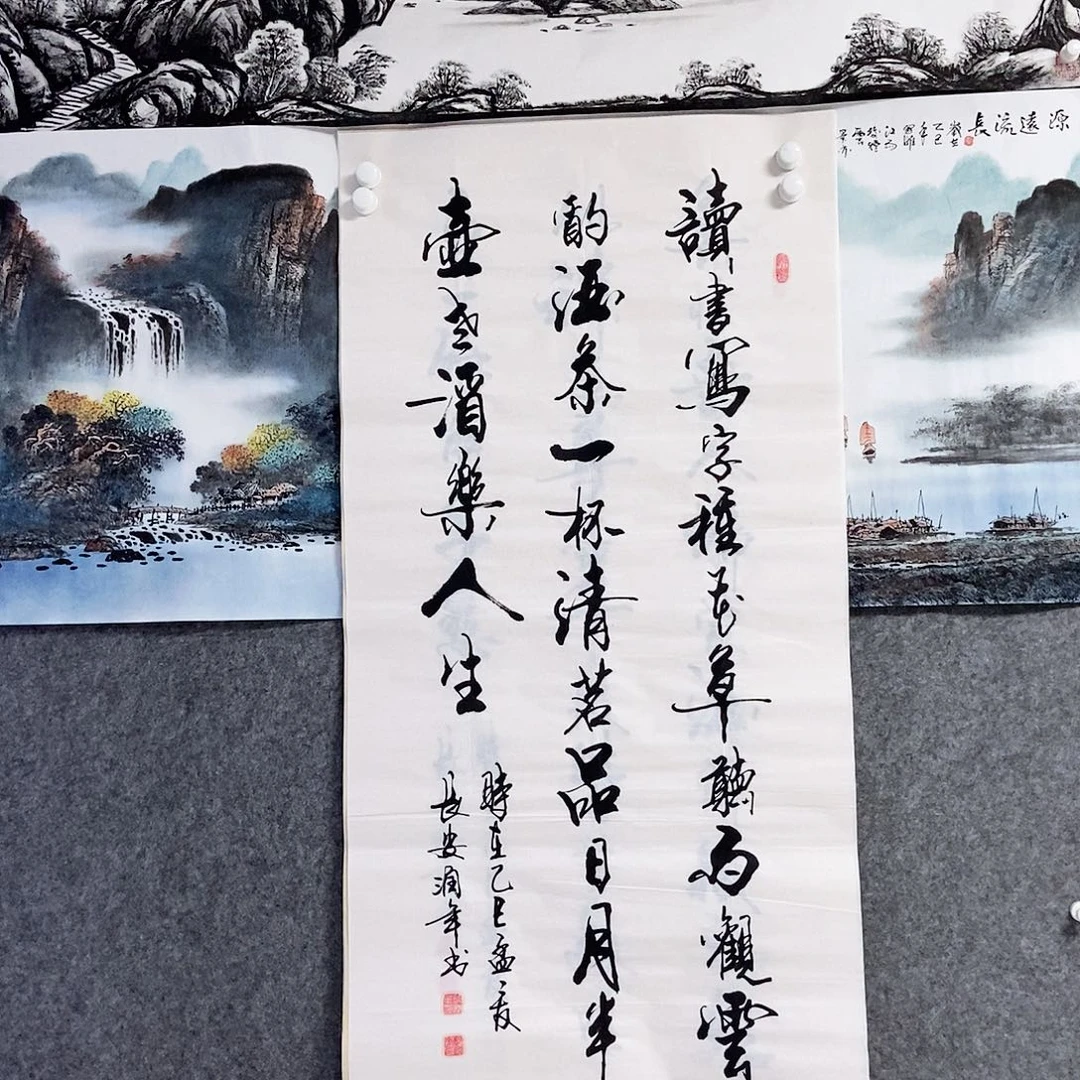 讀書寫字種花草聽雨觀雲
酌酒茶一杯清茗品日月半
壺老酒樂人生
時在乙巳孟夏
長安潤年书
源遠流長
歲在乙巳年